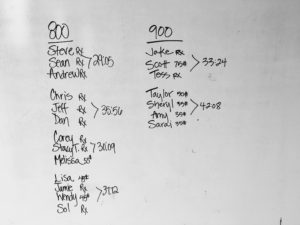 800
Steve Rx
Sean Rx
Andrew Rx
29:05
Chris Rx
Jeff Rx
Dan Rx
35:56
Corey Rx
Stacy T. Rx
Melissa 55#
30:09
Lisa 45#
Jamie Rx
Wendy 45#
Sol Rx
37:12
900
Jake Rx
Scott 75#
Tess Rx
33:24
Taylor 50#
Sheryl 55#
Amy 55#
Sarai 35#
42:08